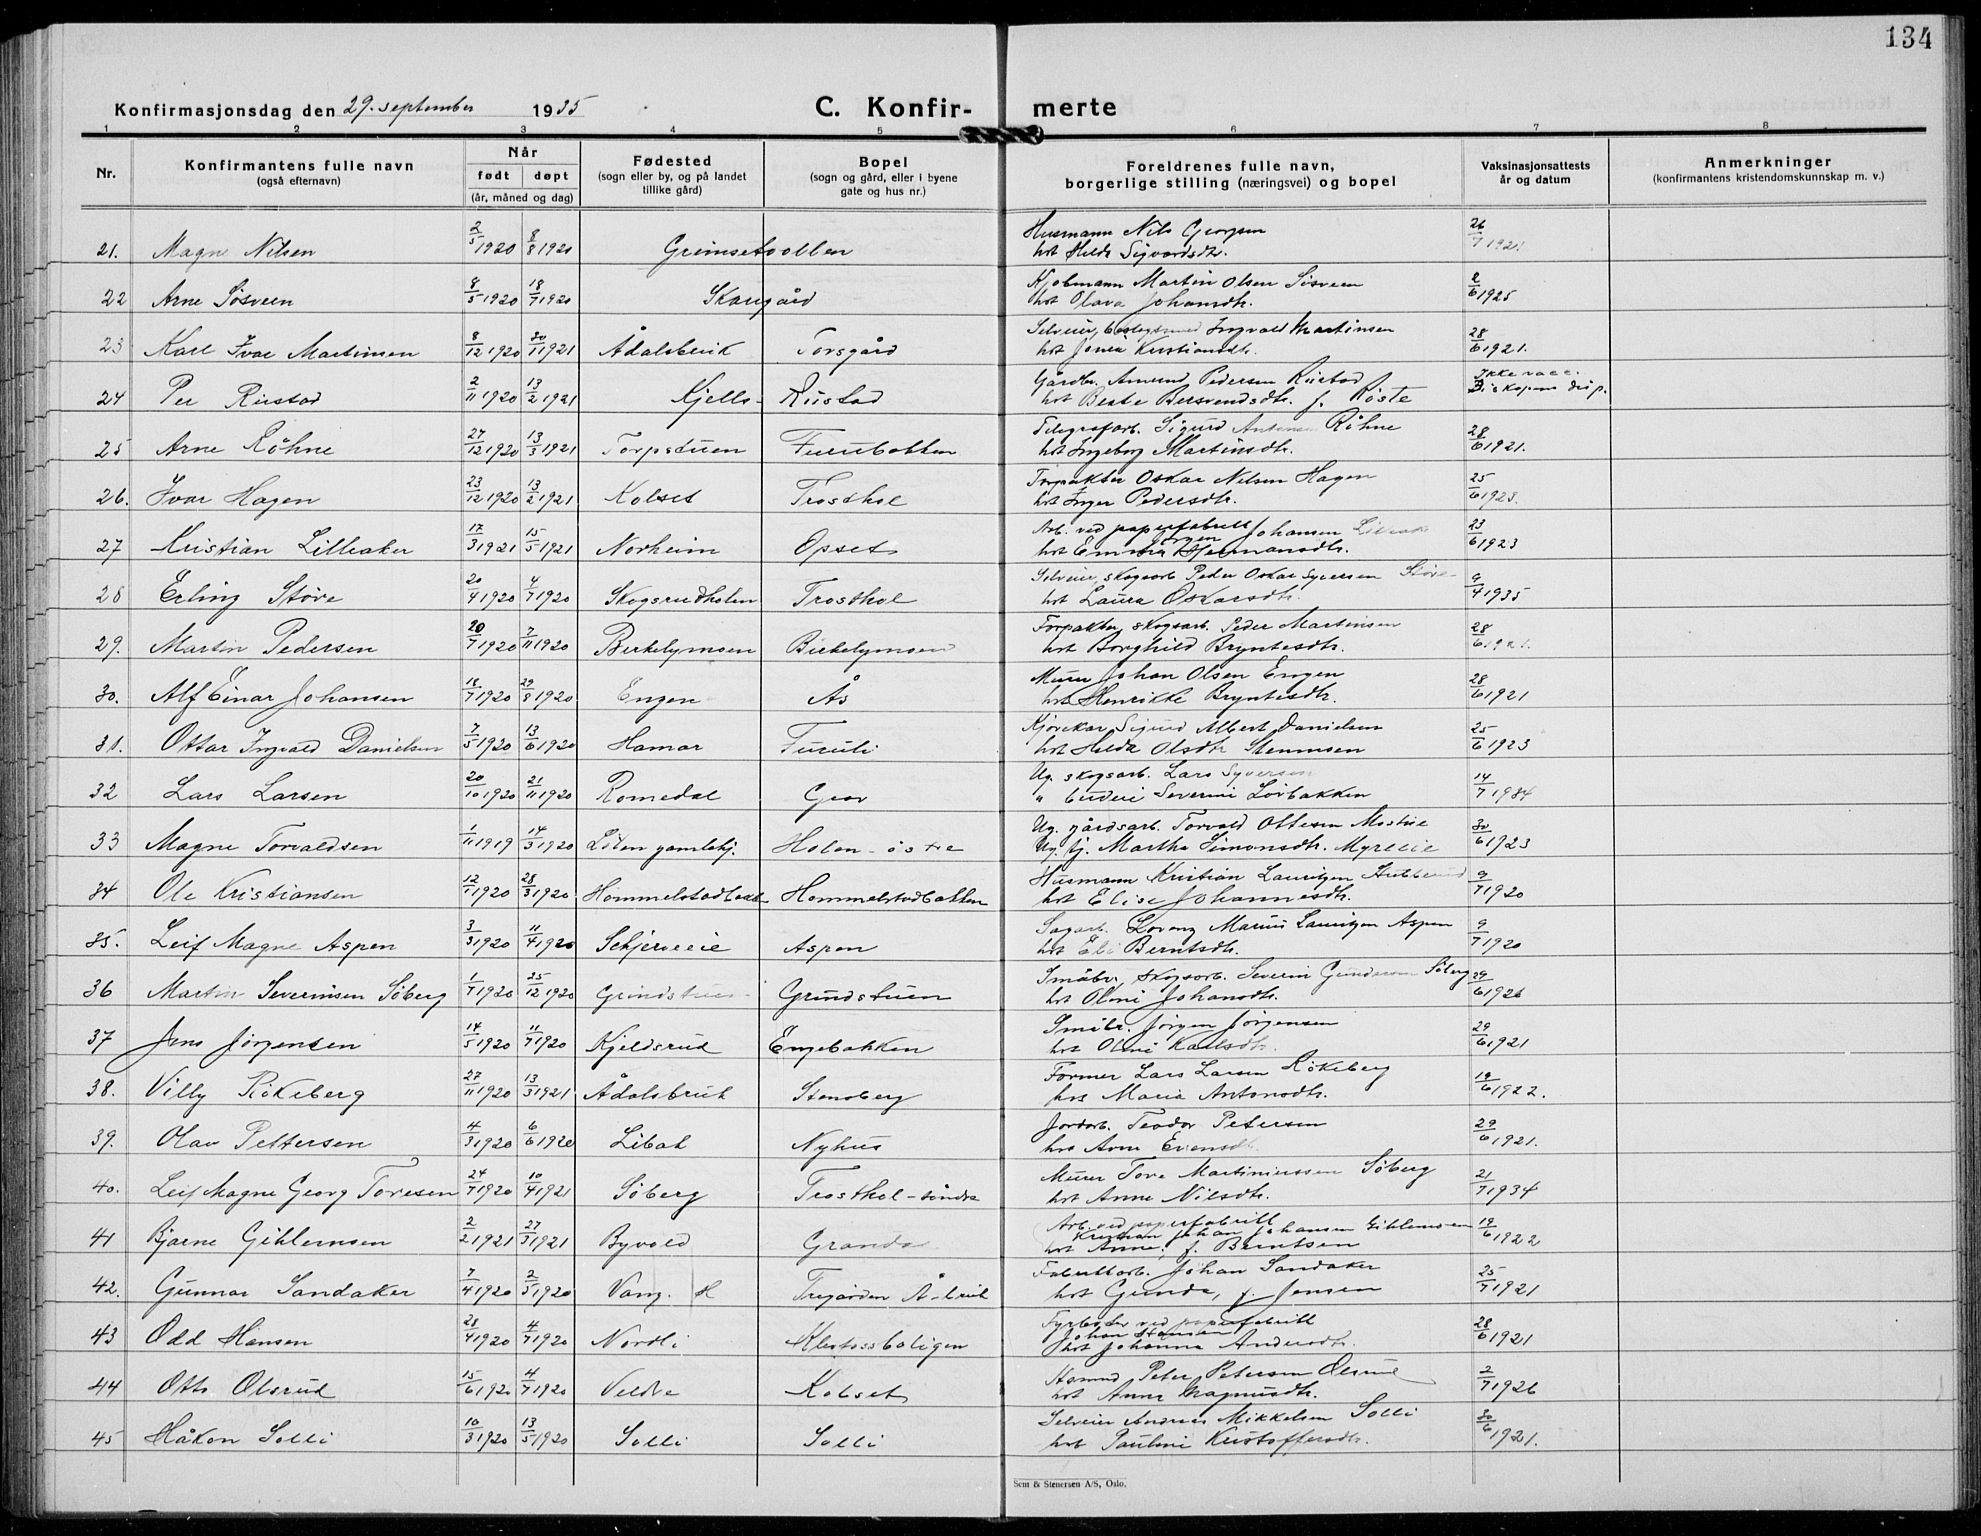 134
Konfirmasjonsdag den 29. september 1935
C. Konfir- merte
1 2 3 4 5 6 7 8
Nr. Konfirmantens fulle navn (også efternavn) Når født døpt (år, måned og dag) Fødested (sogn eller by, og på landet tillike gård) Bopel (sogn og gård, eller i byene gate og hus nr.) Foreldrenes fulle navn, borgerlige stilling (næringsvei) og bopel Vaksinasjonsattests år og datum Anmerkninger (konfirmantens kristendomskunnskap m. v.)
21. Magne Nilsen 2/5 1920 8/8 1920 Grimsetvollen Husmann Nils Georgsen
hst Hilda Sigvardsdtr. 26/7 1921
22 Arne Sösveen 8/5 1920 18/7 1920 Skaugård Kjöbmann Martin Olsen Sösveen
hst Olava Johansdtr. 2/6 1925
23 Karl Ivar Martinsen 8/12 1920 30/1 1921 Ådalsbruk Torsgård Selveier, Ingvald Martinsen
hst Jenia Kristiansdtr. 28/6 1921.
24 Per Rustad 2/11 1920 13/2 1921 Kjells- Rustad Gårdbr. Amund Pedersen Rustad
hst Beate Bersvendsdtr. f. Röste Ikke vacc. Biskopens disp.
25 Arne Röhne 27/12 1920 13/3 1921 Torpstuen Furubakken Telegrafarb. Sigurd Antonsen Röhne
hst Ingeborg Martinsdtr. 28/6 1921.
26. Ivar Hagen 23/12 1920 13/2 1921 Kolset Trosthol Forpakter Oskar Nilsen Hagen
hst Inger Pedersdtr. 25/6 1923.
27 Kristian Lilleaker 17/3 1921 15/5 1921 Norheim Opset Arb. ved papirfabrikk Jörgen Johansen
hst Emma Hermansdtr. 23/6 1923
28 Erling Störe 20/4 1920 4/7 1920 Skogsrudholen Trosthol Selveier, skogsarb. Peder Oskar Syversen Störe
hst Laura Oskarsdtr. 9/4 1935
29. Martin Pedersen 20/7 1920 7/11 1920 Birkelymoen Birkelymoen Forpakter, skogsarb. Peder Martinsen
hst Borghild Bryntesdtr. 28/6 1921.
30. Alf Einar Johansen 18/7 1920 29/8 1920 Engen Ås Murer Johan Olsen Engen
hst Henrikke Bryntesdtr. 28/6 1921
31. Ottar Ingvald Danielsen 7/5 1920 13/6 1920 Hamar Furuli Kjörekar Sigurd Albert Danielsen
hst Hilda Olsdtr Stemmsen 25/6 1923
32 Lars Larsen 20/10 1920 21/11 1920 Romedal Grov Ug. skogsarb. Lars Syversen
" budeie Severine Lörbakken 14/7 1934
33 Magne Torvaldsen 1/11 1919 14/3 1920 Löten gamlehj. Holen - östre Ug. gårdsarb. Torvald Ottesen Mostue
Ug. tj. Martha Simonsdtr. Myrlie 30/6 1923
34 Ole Kristiansen 12/1 1920 28/3 1920 Hommelstadbakk. Hommelstadbakken Husmann Kristian Lauritzen
hst Elise Johannesdtr. 9/7 1920
35. Leif Magne Aspen 3/3 1920 11/4 1920 Skjerveeie Aspen Sagarb. Lorenz Marius Lauritzen Aspen
hst Eli Berntsdtr. 9/7 1920
36 Martin Severinsen Söberg 1/7 1920 25/12 1920 Grindstuen Grundstuen Småbr., skogsarb. Severin Gundersen Söberg
hst Oline Johansdtr. 29/6 1926
37 Jens Jörgensen 14/5 1920 11/7 1920 Kjeldsrud Engebakken Småbr. Jörgen Jörgensen
hst Oline Karlsdtr. 29/6 1921
38. Villy Rökeberg 27/11 1920 13/3 1921 Ådalsbruk Stensberg Former Lars Larsen Rökeberg
hst Maria Antonsdtr. 19/6 1922.
39. Olav Pettersen 4/3 1920 6/6 1920 Libak Nyhus Jordarb. Teodor Petersen
hst Anne Evensdtr. 29/6 1921.
40. Leif Magne Georg Toresen 24/7 1920 10/4 1921 Söberg Trosthol-söndre Murer Tore Martiniussen Söberg
hst Anne Nilsdtr. 2/7 1934
41 Bjarne Gihlemsen 2/2 1921 27/3 1921 Byvold Granda Arb. ved papirfabrikk
Kristian Johan Johansen Gihlemsen
hst Anne, f. Berntsen 19/6 1922
42. Gunnar Sandaker 7/4 1920 2/5 1920 Vang. H Tregården Å-bruk Fabrikkarb. Johan Sandaker
hst Gunda, f. Jensen 25/7 1921
43 Odd Hansen 28/4 1920 4/7 1920 Nordli Klevfossboligen Fyrböter ved papirfabrikk
Johan Hansen
hst Johanna Andersdtr. 28/6 1921
44 Otto Olsrud 15/6 1920 4/7 1920 Veldre Kolset Peter Petersen Olsrud
hst Anna Magnusdtr. 2/7 1926
45 Håkon Solli 10/3 1920 13/5 1920 Solli Solli Selveier Andreas Mikkelsen Solli
hst Pauline Kristoffersdtr. 30/6 1921.
Sem & Stenersen A/S, Oslo.